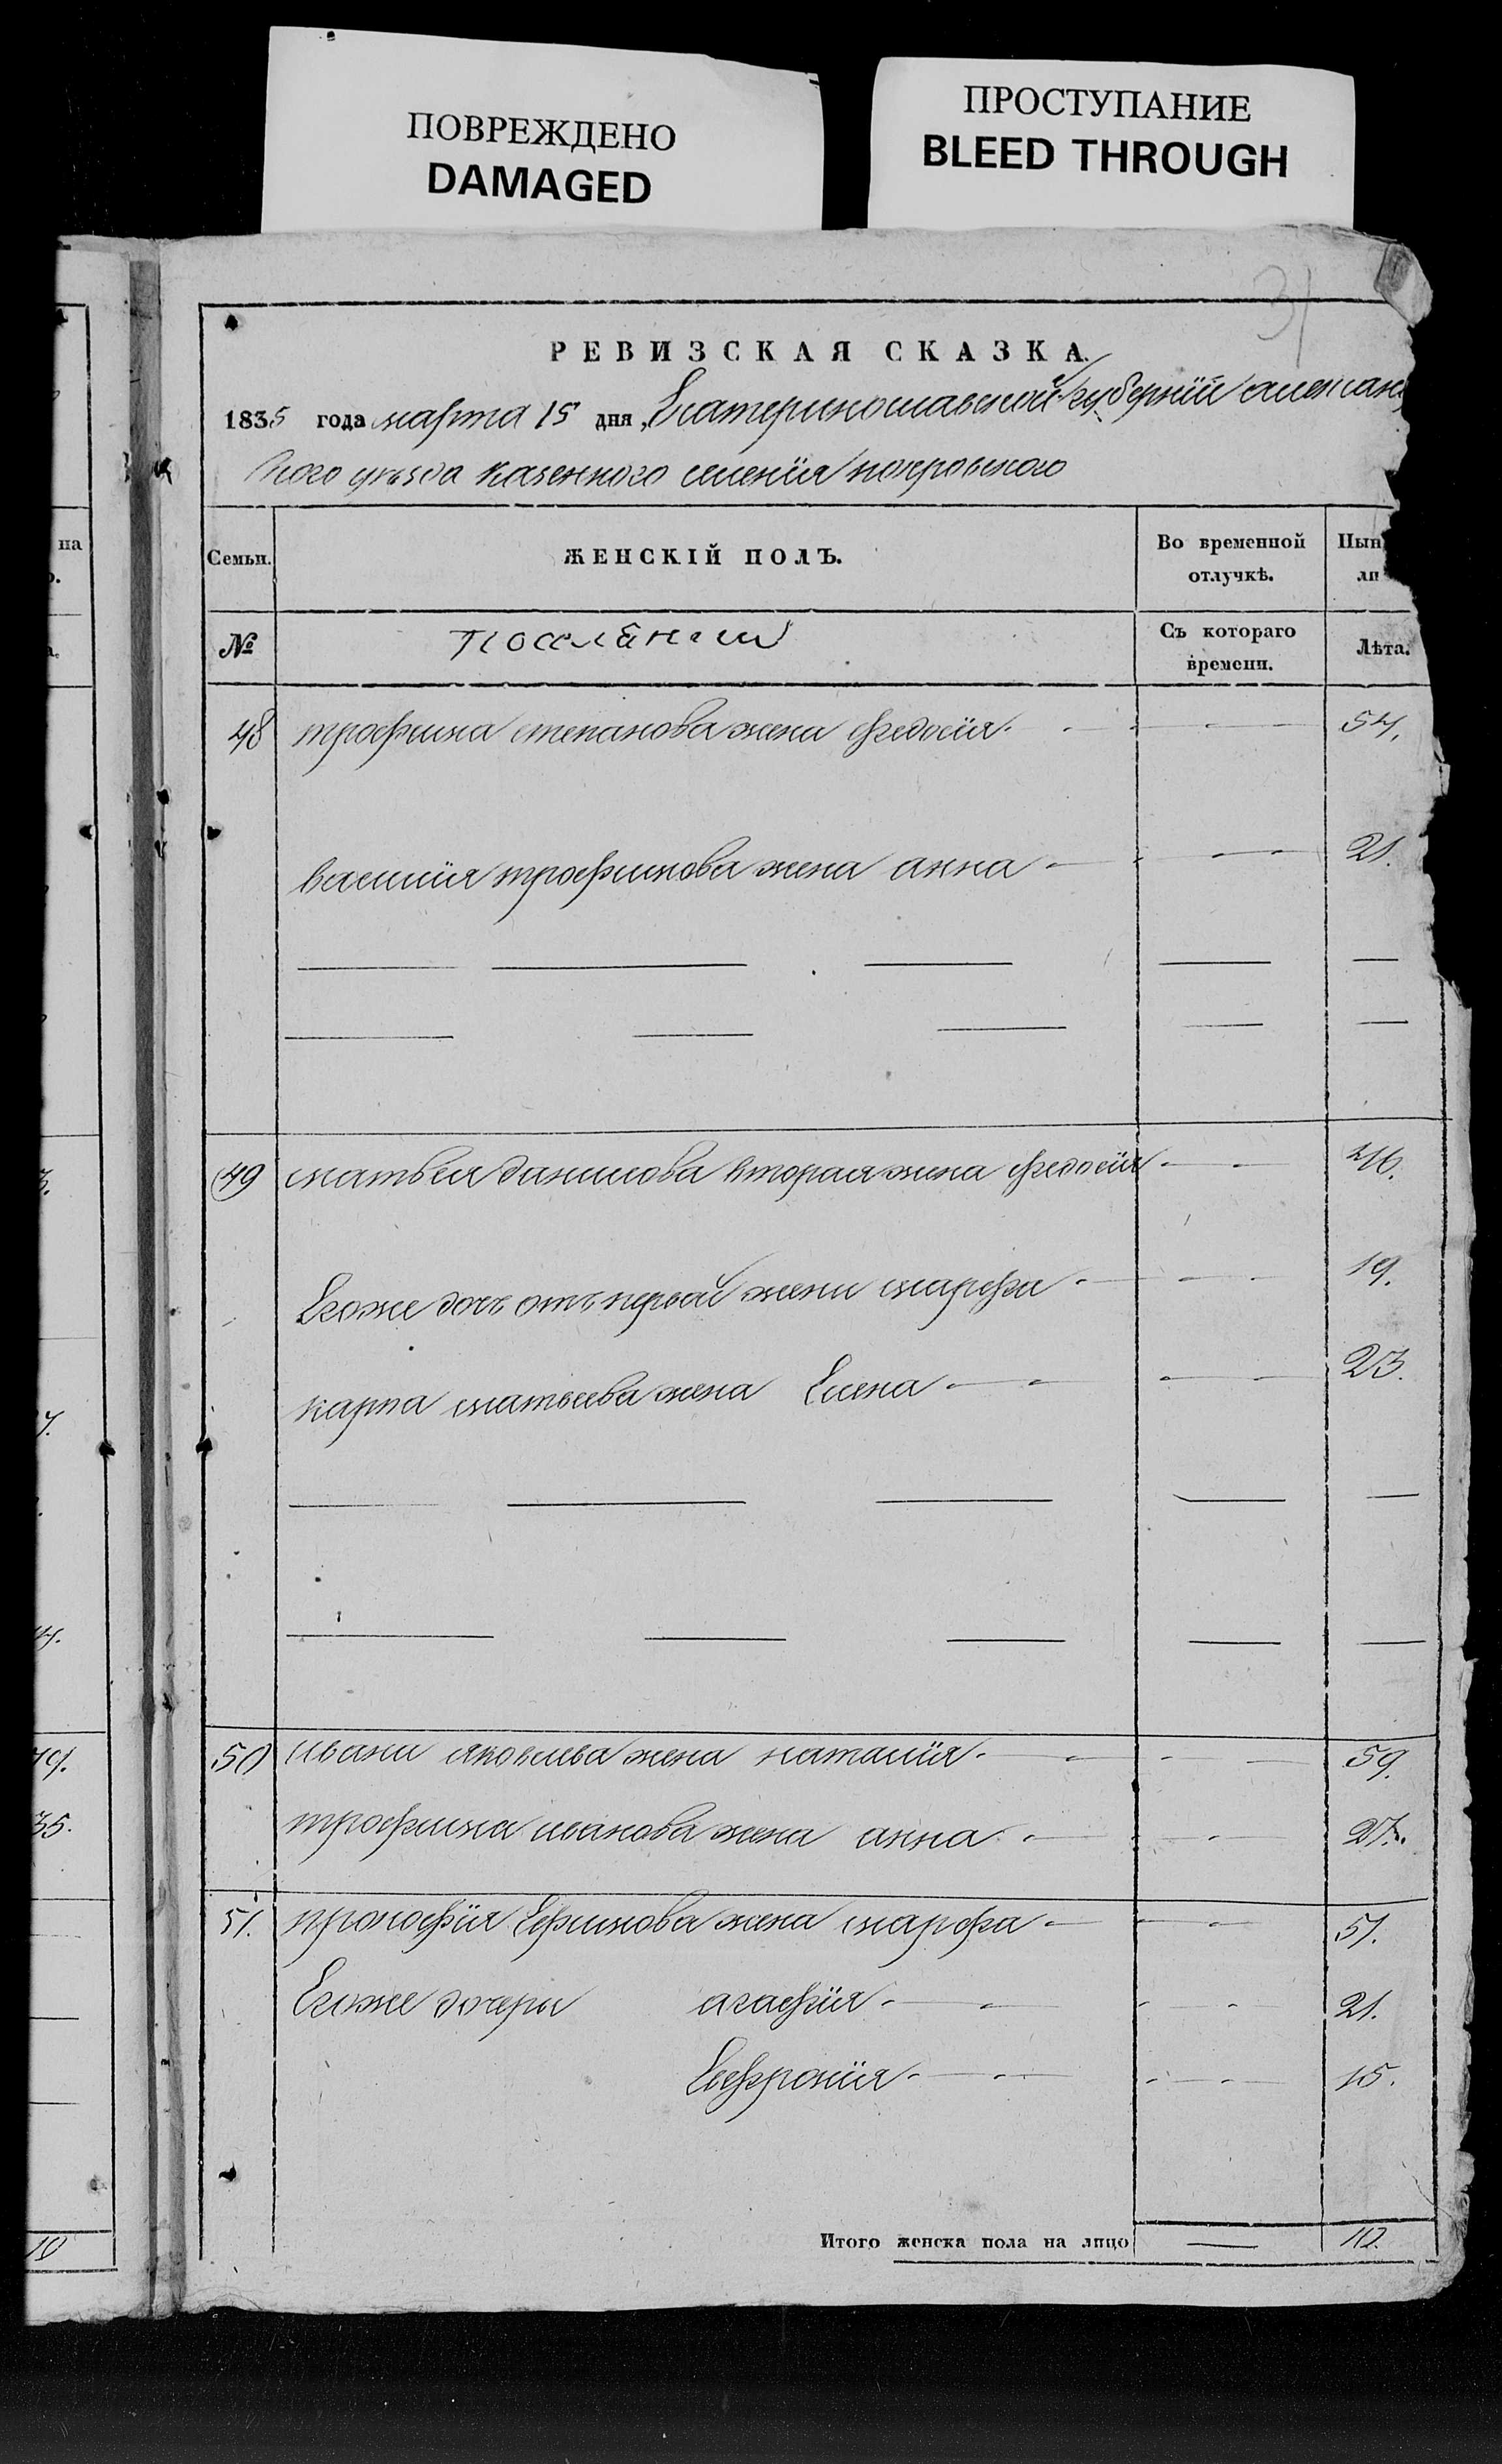 ПОВРЕЖДЕНО
DAMAGED
ПРОСТУПАНИЕ
BLEED THROUGH
31
РЕВИЗСКАЯ СКАЗКА.
1835 года марта 15 дня, Екатеринославской губернїи алексан
ного уезда казенного селенїя покровского
на
Семьи.
ЖЕНСКІЙ ПОЛЪ.
Во временной отлучкѣ.
Нын
ли
№
Съ котораго времени.
Лѣта.
48 трофима степанова жена федосїя 54.
василїя трофимова жена анна 21.
49 матвея данилова вторая жена федосїя 46.
Егоже дочь отъ первой жени марфа 19.
карпа матвеева жена Елена 23.
50 ивана яковлева жена наталїя 59.
трофима иванова жена анна 27.
51. прокофїя Ефимова жена марфа 51.
Егоже дочери агафїя 21.
Евфронїя 15.
35.
Итого женска пола на лицо 10.
10